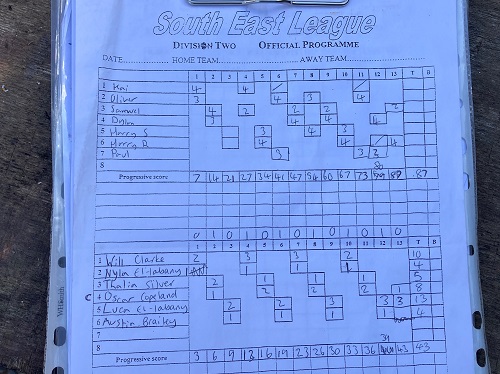 South East League
DIVISION TWO OFFICIAL PROGRAMME
DATE............ HOME TEAM............................AWAY TEAM....................
1 2 3 4 5 6 7 8 9 10 11 12 13 T B
1 Kai 4 4
2 Oliver 3 4 3 4
3 Samuel 4 2 2 2 2
4 Dylan 3 4 4 4
5 Harry S 3 4 3
6 Harry R 4 4 4
7 Paul 3 3 2
8
Progressive score 7 14 21 27 34 41 47 54 60 67 73 87 87
0 1 0 1 0 1 0 1 0 1 0 1 0
1 2 3 4 5 6 7 8 9 10 11 12 13 T B
1 Will Clarke 2 3 3 2 10
2 Nyla El-labany 1 1 1 4
3 Thalia Silver 2 1 1 1 5
C 4 Oscar Copeland 1 2 2 2 1 8
5 Luca El-labany 2 2 3 3 3 13
6 Austin Brailey 1 1 1 1 4
7
8
39
Progressive score 3 6 9 13 16 19 23 26 30 33 36 43 43